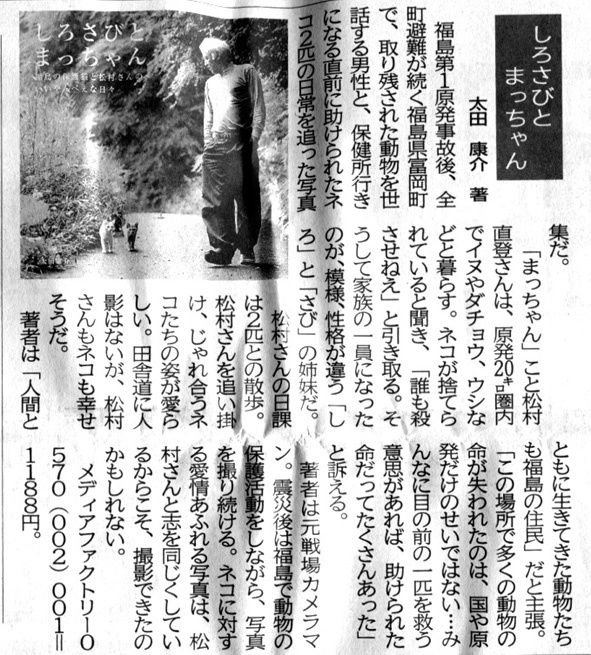 しろさびと
まっちゃん
太田 康介 著
福島第1原発事故後、全
町避難が続く福島県富岡町
で、取り残された動物を世
話する男性と、保健所行き
になる直前に助けられたネ
コ2匹の日常を追った写真
集だ。
「まっちゃん」こと松村
直登さんは、原発20㌔圏内
でイヌやダチョウ、ウシな
どと暮らす。ネコが捨てら
れていると聞き、「誰も殺
させねえ」と引き取る。そ
うして家族の一員になった
のが、模様、性格が違う「し
ろ」と「さび」の姉妹だ。
松村さんの日課
は2匹との散歩。
松村さんを追い掛
け、じゃれ合うネ
コたちの姿が愛ら
しい。田舎道に人
影はないが、松村
さんもネコも幸せ
そうだ。
著者は「人間と
ともに生きてきた動物たち
も福島の住民」だと主張。
「この場所で多くの動物の
命が失われたのは、国や原
発だけのせいではない…み
んなに目の前の一匹を救う
意思があれば、助けられた
命だってたくさんあった」
と訴える。
著者は元戦場カメラマ
ン。震災後は福島で動物の
保護活動をしながら、写真
を撮り続ける。ネコに対す
る愛情あふれる写真は、松
村さんと志を同じくしてい
るからこそ、撮影できたの
かもしれない。
メディアファクトリー0
570(002)001=
1188円。
しろさびと
まっちゃん
福島の保護猫と松村さんの